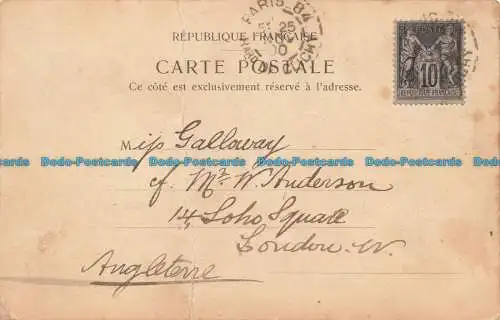 PARIS-84
25
00
RÉPUBLIQUE FRANÇAISE
CARTE POSTALE
Ce côté est exclusivement réservé à l'adresse.
10
REPUBLIQUE FRANCAISE
Miss Gallaway
Dodo-Postcards Dodo-Postcards Dodo-Postcards Dodo-Postcards Dodo-Postcards
cf. Mr. W. Anderson
14, Soho Square
London. W.
Angleterre